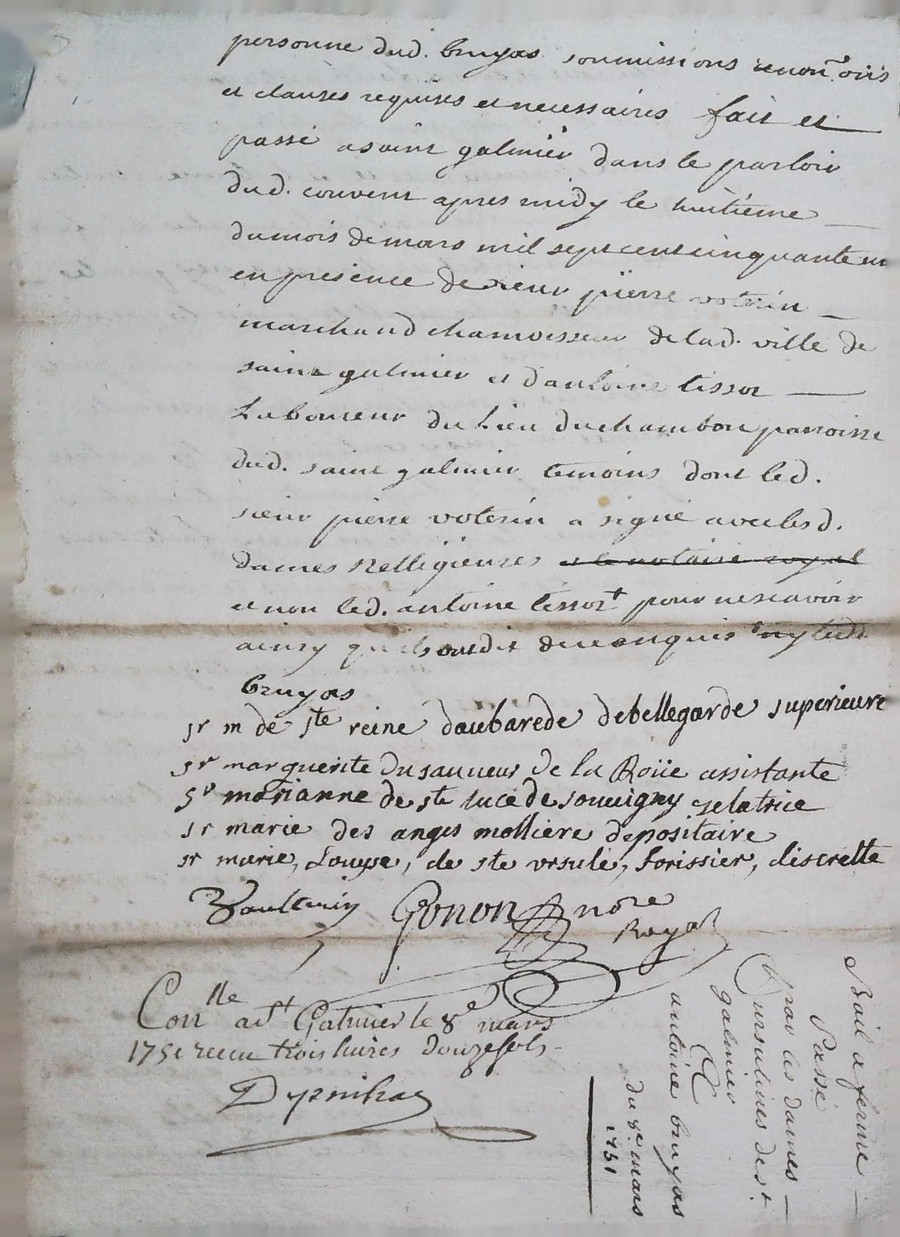 personne dud. bruyas soumissions renon.ons
et clauses requises et necessaires fait et
passé a saint galmier dans le parloir
dud. couvent apres midy le huitieme
du mois de mars mil sept cent cinquante un
en presence de sieur pierre voterin
marchand chamoisseur de lad. ville de
saint galmier et d'antoine tissot
Laboureur du lieu du chambon parroisse
dud. saint galmier temoins dont led.
sieur pierre voterin a signé avec lesd.
dames Relligieuses et le notaire royal
et non led. antoine tissot + pour ne scavoir
ainsy qu'ils ont dit de ce enquis + ny led.
bruyas
sr m de ste reine daubarede de bellegarde superieure
sr marguerite du sauveur de la Roüe assistante
sr marianne de ste luce de souvigny zelatrice
sr marie des anges molliere depositaire
sr marie, Loupe, de ste ursule, forissier, discrette
Gonon nore
Royal
Conlle a st Galmier le 8e mars
1751 receu trois livres douze sols
Bail a ferme
Passé
par les dames
ursulines de st
galmier
A
antoine bruyas
du 8e mars
1751